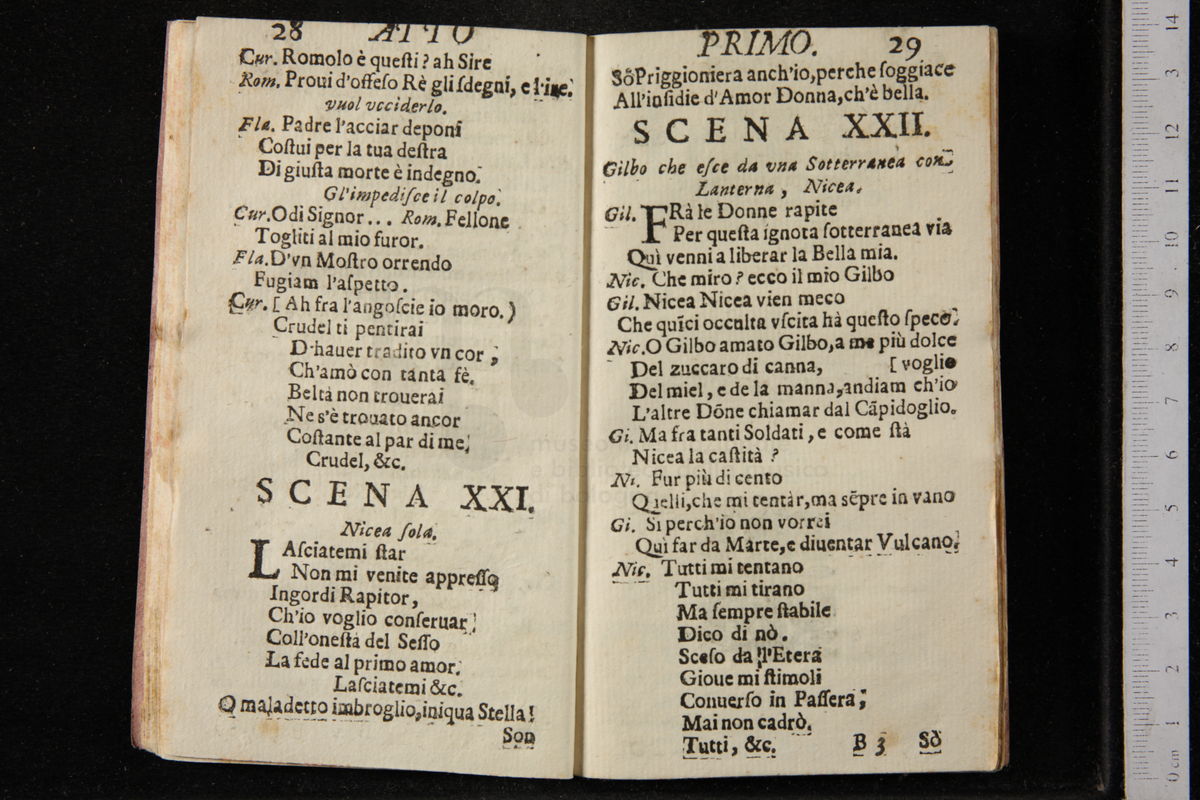 28 ATTO
Cur. Romolo è queſti? ah Sire
Rom. Proui d'offeſo Rè gli ſdegni, e l'ire.
vuol vcciderlo.
Fla. Padre l'acciar deponi
Coſtui per la tua deſtra
Di giuſta morte è indegno.
Gl'impediſce il colpo.
Cur. Odi Signor... Rom. Fellone
Togliti al mio furor.
Fla. D'vn Moſtro orrendo
Fugiam l'aſpetto.
Cur. [Ah fra l'angoſcie io moro.)
Crudel ti pentirai
D'hauer tradito vn cor,
Ch'amò con tanta fè.
Beltà non trouerai
Ne s'è trouato ancor
Coſtante al par di me.
Crudel, &c.
SCENA XXI.
Nicea ſola.
LAſciatemi ſtar
Non mi venite appreſſo
Ingordi Rapitor,
Ch'io voglio conſeruar
Coll'oneſtà del Seſſo
La fede al primo amor.
Laſciatemi &c.
O maladetto imbroglio, iniqua Stella!
Son
PRIMO. 29
Sõ Priggioniera anch'io, perche ſoggiace
All'inſidie d'Amor Donna, ch'è bella.
SCENA XXII.
Gilbo che eſce da vna Sotterranea con
Lanterna, Nicea.
Gil. FRà le Donne rapite
Per queſta ignota ſotterranea via
Quì venni a liberar la Bella mia.
Nic. Che miro? ecco il mio Gilbo
Gil. Nicea Nicea vien meco
Che quĩci occulta vſcita hà queſto ſpeco.
Nic. O Gilbo amato Gilbo, a me più dolce
Del zuccaro di canna, [voglio
Del miel, e de la manna, andiam ch'io
L'altre Dõne chiamar dal Cãpidoglio.
Gi. Ma fra tanti Soldati, e come ſtà
Nicea la caſtità?
Ni. Fur più di cento
Quelli, che mi tentàr, ma sẽpre in vano
Gi. Si perch'io non vorrei
Quì far da Marte, e diuentar Vulcano.
Nic. Tutti mi tentano
Tutti mi tirano
Ma ſempre ſtabile
Dico di nò.
Sceſo dall'Etera
Gioue mi ſtimoli
Conuerſo in Paſſera;
Mai non cadrò.
Tutti, &c. B 3 Sò